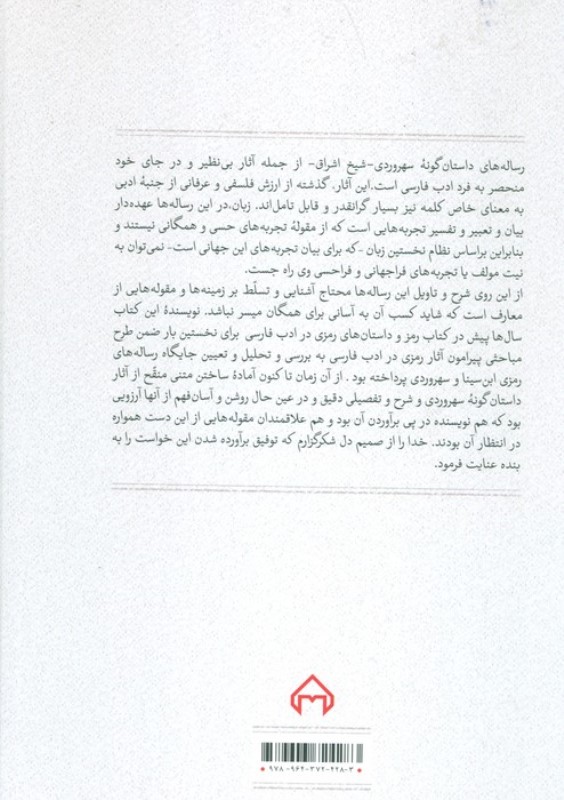 رساله‌های داستان‌گونهٔ سهروردی-شیخ اشراق- از جمله آثار بی‌نظیر و در جای خود
منحصر به فرد ادب فارسی است.این آثار، گذشته از ارزش فلسفی و عرفانی از جنبهٔ ادبی
به معنای خاص کلمه نیز بسیار گرانقدر و قابل تامل‌اند. زبان،در این رساله‌ها عهده‌دار
بیان و تعبیر و تفسیر تجربه‌هایی است که از مقولهٔ تجربه‌های حسی و همگانی نیستند و
بنابراین براساس نظام نخستین زبان -که برای بیان تجربه‌های این جهانی است- نمی‌توان به
نیت مولف یا تجربه‌های فراجهانی و فراحسی وی راه جست.
از این روی شرح و تاویل این رساله‌ها محتاج آشنایی و تسلّط بر زمینه‌ها و مقوله‌هایی از
معارف است که شاید کسب آن به آسانی برای همگان میسر نباشد. نویسندهٔ این کتاب
سال‌ها پیش در کتاب رمز و داستان‌های رمزی در ادب فارسی برای نخستین بار ضمن طرح
مباحثی پیرامون آثار رمزی در ادب فارسی به بررسی و تحلیل و تعیین جایگاه رساله‌های
رمزی ابن‌سینا و سهروردی پرداخته بود . از آن زمان تا کنون آمادهٔ ساختن متنی منقّح از آثار
داستان‌گونهٔ سهروردی و شرح و تفصیلی دقیق و در عین حال روشن و آسان‌فهم از آنها آرزویی
بود که هم نویسنده در پی برآوردن آن بود و هم علاقمندان مقوله‌هایی از این دست همواره
در انتظار آن بودند. خدا را از صمیم دل شکرگزارم که توفیق برآورده شدن این خواست را به
بنده عنایت فرمود.
۹۷۸-۹۶۴-۳۷۲-۴۲۸-۳